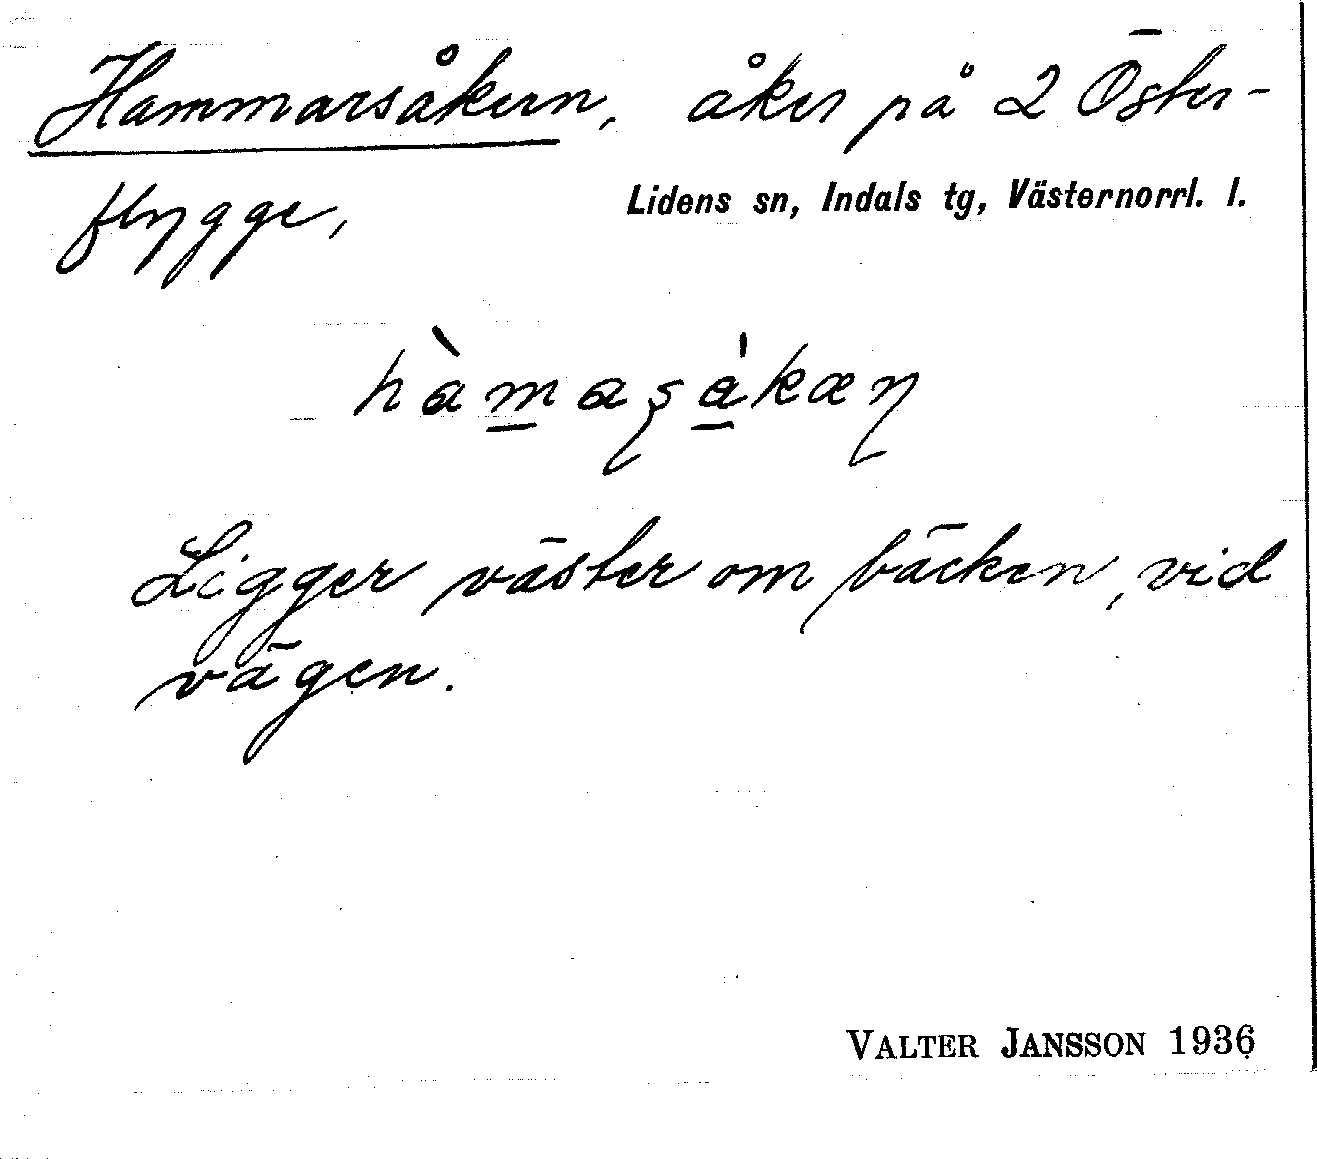 Hammarsåkern, åker på 2 Öster-
flygge,
Lidens sn, Indals tg, Västernorrl. l.
hàmaʂåkæɳ
Ligger väster om bäcken, vid
vägen.
VALTER JANSSON 1936